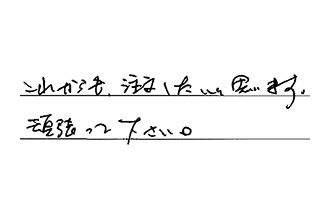 これからも、注文したいと思います。
頑張って下さい。